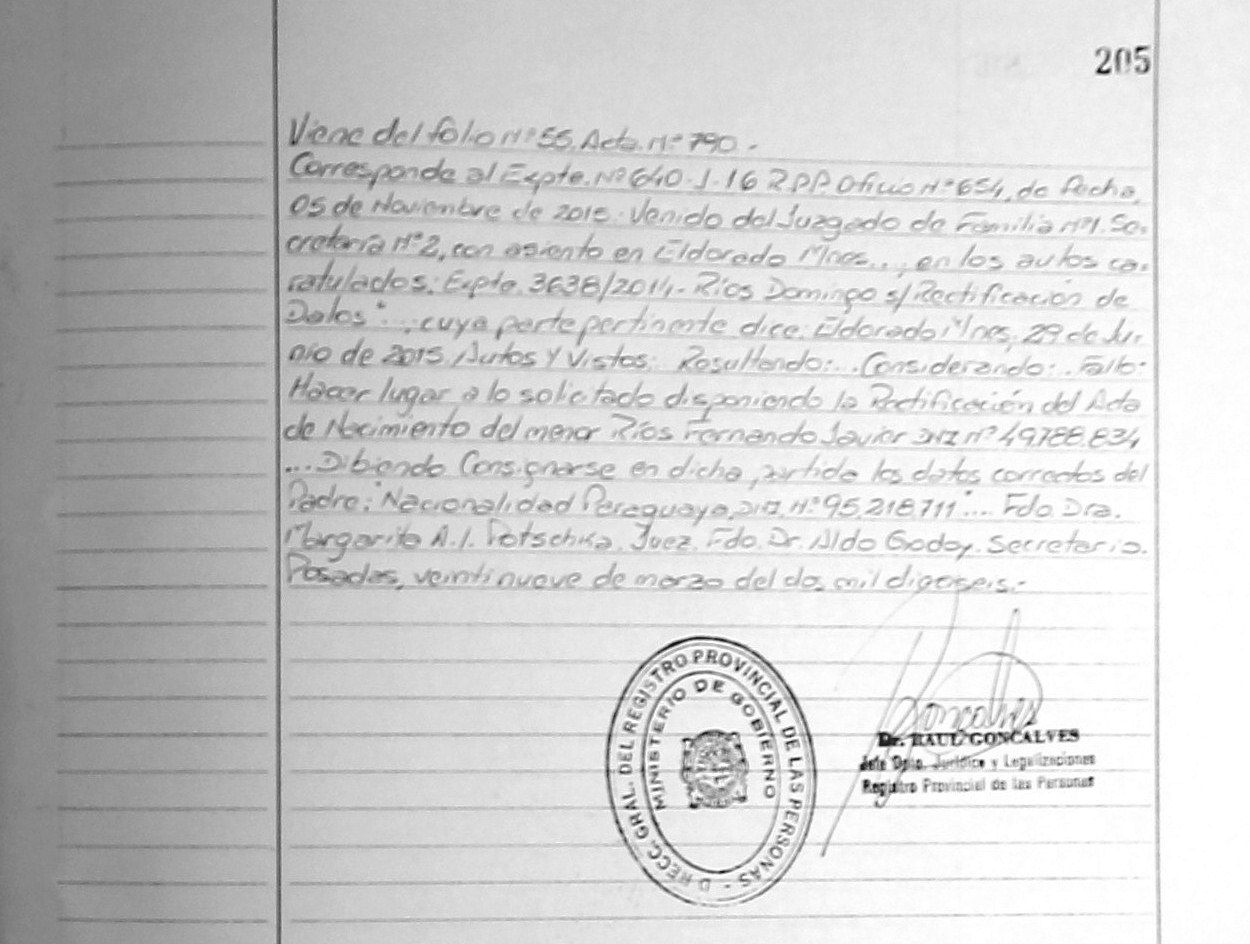 205
Viene del folio Nº 55, Acta. Nº 790.-
Corresponde al Expte. Nº 640-J-16 R.P.P. Oficio Nº 654, de fecha,
05 de Noviembre de 2015. Venido del Juzgado de Familia Nº1. Se-
cretaría Nº2, con asiento en Eldorado Mnes.., en los autos ca-
ratulados: Expte. 3638/2014- Ríos Domingo s/Rectificación de
Datos"... cuya parte pertinente dice: Eldorado Mnes, 29 de Ju-
nio de 2015. Autos y Vistos: Resultando:.. Considerando:. Fallo:
Hacer lugar a lo solicitado disponiendo la Rectificación del Acta
de Nacimiento del menor Ríos Fernando Javier DNI nº 49.788.834
... Dibiendo Consignarse en dicha, partida los datos correctos del
Padre: "Nacionalidad Paraguaya, DNI. Nº 95.218.711"... Fdo. Dra.
Margarita A.I. Potschka. Juez. Fdo. Dr. Aldo Godoy. Secretario.
Posadas, veintinueve de marzo del dos mil dieciseis.-
DIRECC. GRAL. DEL REGISTRO PROVINCIAL DE LAS PERSONAS -
MINISTERIO DE GOBIERNO
Goncalves
Dr. RAUL GONCALVES
Jefe Dpto. Jurídico y Legalizaciones
Registro Provincial de las Personas